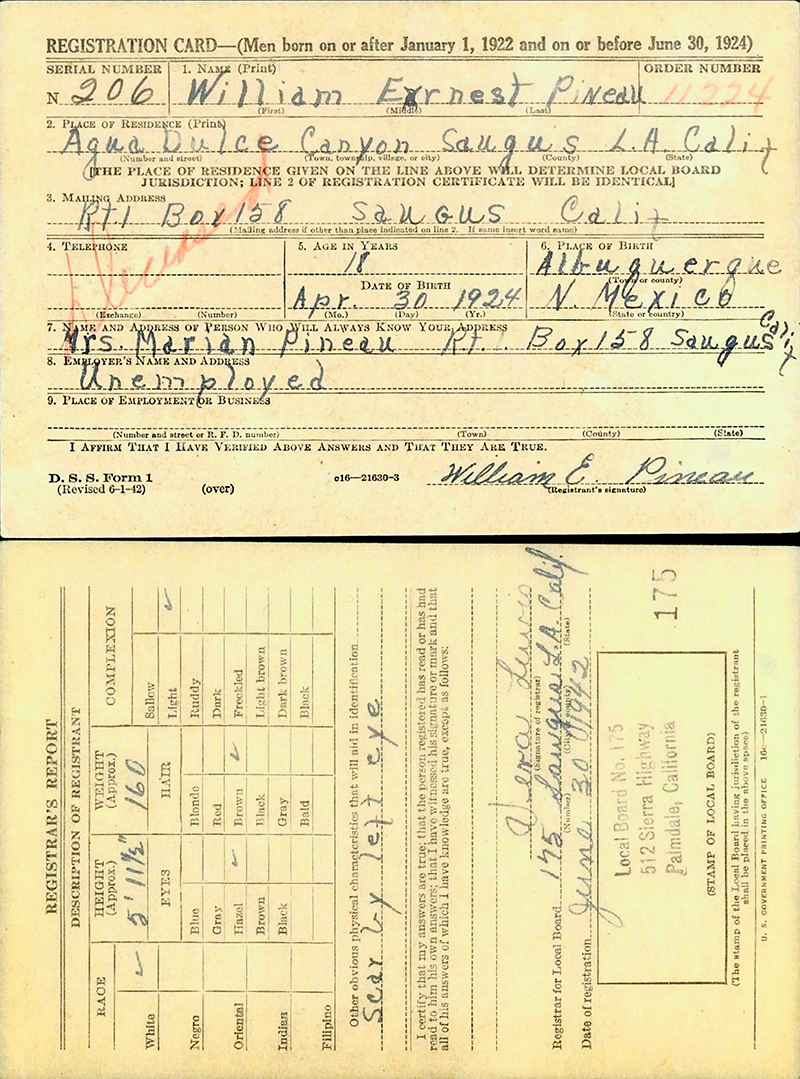 REGISTRATION CARD—(Men born on or after January 1, 1922 and on or before June 30, 1924)
SERIAL NUMBER 1. NAME (Print) ORDER NUMBER
N 206 William Exrnest Pineau 11224
(First) (Middle) (Last)
2. PLACE OF RESIDENCE (Print)
Agua Dulce Canyon Saugus L.A. Calif
(Number and street) (Town, township, village, or city) (County) (State)
[THE PLACE OF RESIDENCE GIVEN ON THE LINE ABOVE WILL DETERMINE LOCAL BOARD
JURISDICTION; LINE 2 OF REGISTRATION CERTIFICATE WILL BE IDENTICAL]
3. MAILING ADDRESS
Rt 1 Box 158 Saugus Calif
(Mailing address if other than place indicated on line 2. If same insert word same)
4. TELEPHONE 5. AGE IN YEARS 6. PLACE OF BIRTH
18 Albuquerque
(Town or county)
DATE OF BIRTH
Apr. 30 1924 N. Mexico
(Exchange) (Number) (Mo.) (Day) (Yr.) (State or country)
7. NAME AND ADDRESS OF PERSON WHO WILL ALWAYS KNOW YOUR ADDRESS
Mrs. Marian Pineau Rt. Box 158 Saugus Calif
8. EMPLOYER'S NAME AND ADDRESS
Unemployed
9. PLACE OF EMPLOYMENT OR BUSINESS
(Number and street or R. F. D. number) (Town) (County) (State)
I AFFIRM THAT I HAVE VERIFIED ABOVE ANSWERS AND THAT THEY ARE TRUE.
D. S. S. Form 1
(Revised 6-1-42) (over) o16—21630-3 William E. Pineau
(Registrant's signature)
REGISTRAR'S REPORT
DESCRIPTION OF REGISTRANT
RACE HEIGHT (Approx.) WEIGHT (Approx.) COMPLEXION
5' 11½" 160
White ✓ EYES HAIR Sallow
Light ✓
Negro Blue Blonde Ruddy
Gray Red Dark
Oriental Hazel ✓ Brown ✓ Freckled
Brown Black Light brown
Indian Black Gray Dark brown
Bald Black
Filipino
Other obvious physical characteristics that will aid in identification
Scar by left eye
I certify that my answers are true; that the person registered has read or has had
read to him his own answers; that I have witnessed his signature or mark and that
all of his answers of which I have knowledge are true, except as follows:
Vera
(Signature of registrar)
Registrar for Local Board 175 Saugus L.A. Calif.
(Number) (City or county) (State)
Date of registration June 30 1942
Local Board No. 175
512 Sierra Highway
Palmdale, California
175
(STAMP OF LOCAL BOARD)
(The stamp of the Local Board having jurisdiction of the registrant
shall be placed in the above space)
U. S. GOVERNMENT PRINTING OFFICE 16c—21630-1